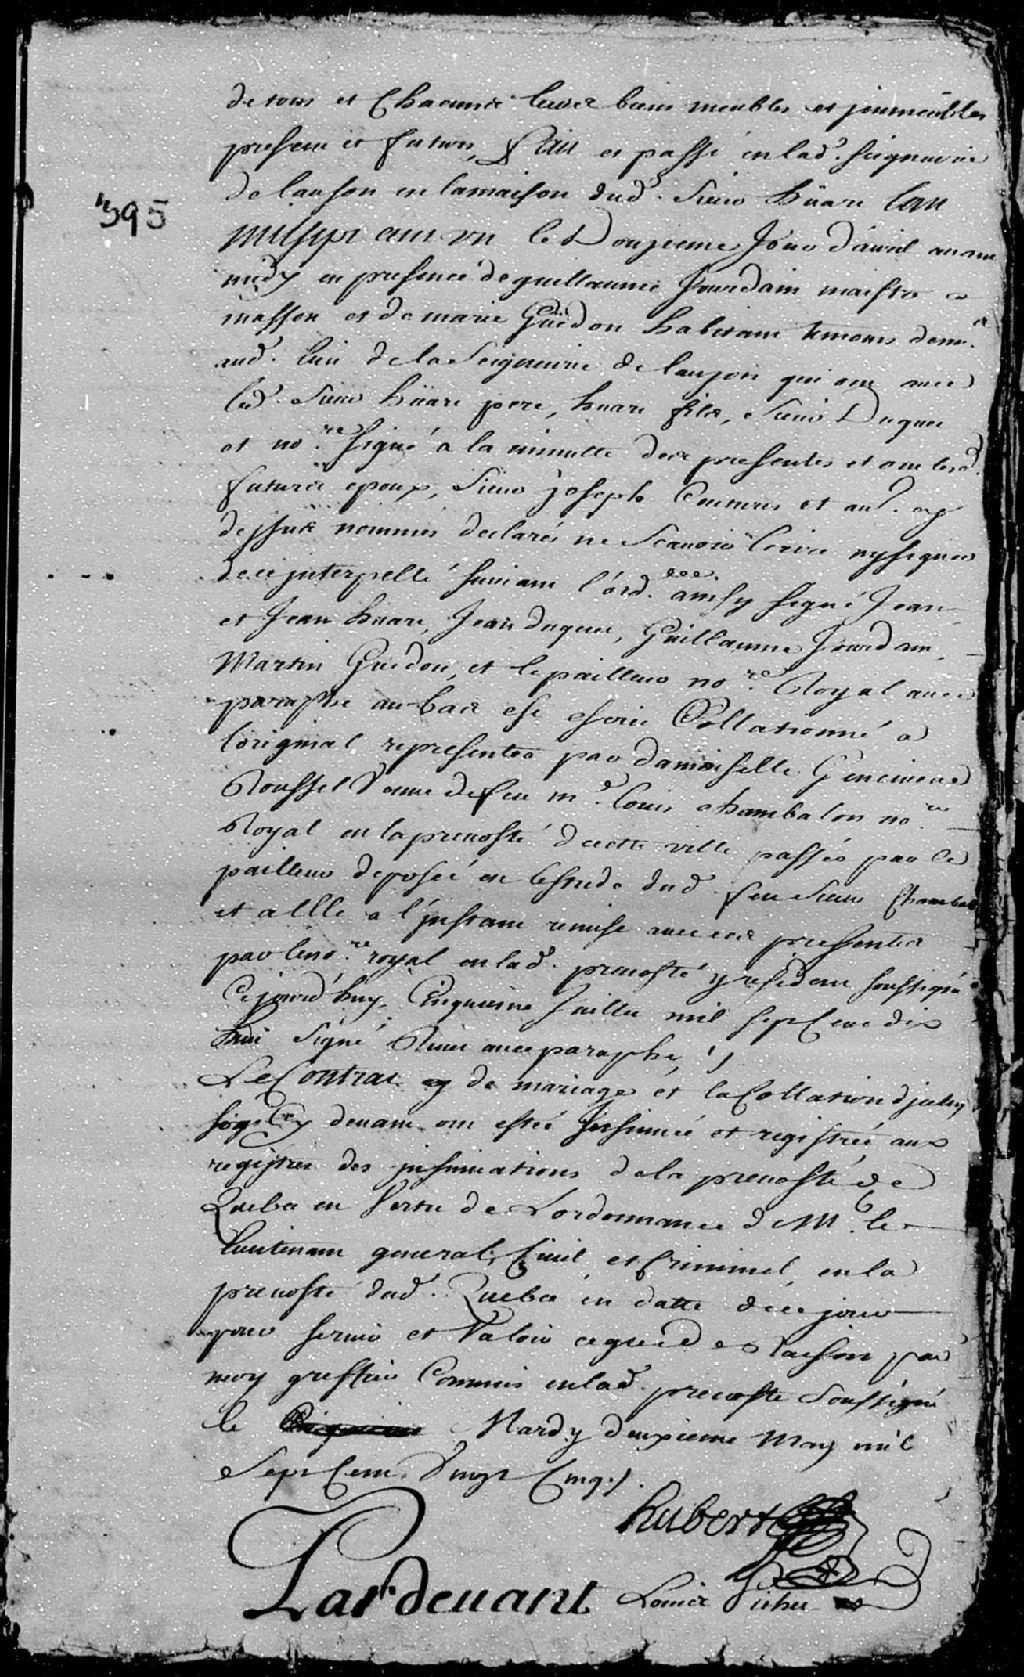 de tous et Chacuns leurs biens meubles et jmmeubles
presens et futurs, fait et passé en lad. seigneurie
de lauson en la maison dud. Sieur hüare Lan
Mil sept cent un le Douzieme Jour d'avril avant
midy en presence de guillaume Jourdain maistre
395
masson et de Guedon habitant temoins dem.
aud. lieu de la Seigneurie de lauzon qui ont avec
led. Sieur hüare pere, huare fils, Sieur Duquet
et no.re signé a la minutte des presentes et ont lesd.
futurs epoux, Sieur joseph Coutures et aud.
dessus nommés declarés ne scavoir Ecrire ny signer
de ce jnterpellé suivant l'ord.ce ainsy signé Jean
et Jean huare, Jean duquet, Guillaume Jourdain,
Martin Guedon, et lepailleur no.re Royal avec
paraphe au bas est escrit Collationné a
loriginal representée par damoiselle Genevieve
Roussel Veuve de feu m.e Louis Chambalon no.re
Royal en la prevosté de cette ville passée par le
pailleur deposée en lestude dud. feu Sieur Chambalon
et a Elle a l'jnstant remise avec ces presentes
par le no.re royal en lad. prevosté y residant soussigné
Cejourd'huy Cinquieme Juillet mil sept cent dix
huit Signé Rivet avec paraphe,
Le Contrat de mariage et la Collation
cy devant ont esté jnsinué et registrée aux
registres des jnsinuations de la prevosté de
Quebec en Vertu de Lordonnance de M.r le
Lieutenant general, Civil et Criminel, en la
prevosté dud. Quebec en datte de ce jour
pour servir et Valoir ce que de Raison par
moy greffier Commis en lad. prevosté Soussigné
le Mardy deuxieme May mil
Sept Cent Vingt Cinq.
hubert
Pardevant Louis